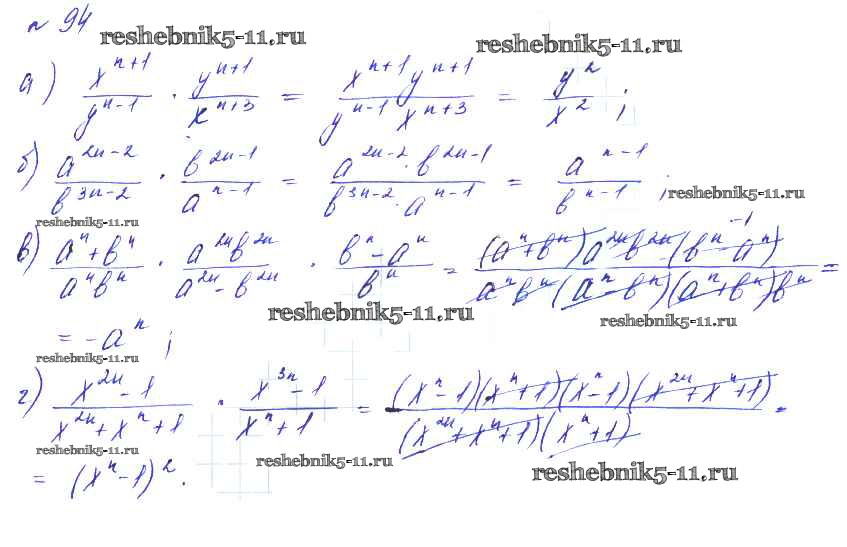 № 94
reshebnik5-11.ru
reshebnik5-11.ru
а) x^{n+1}/y^{n-1} · y^{n+1}/x^{n+3} = x^{n+1}y^{n+1}/y^{n-1} x^{n+3} = y^2/x^2 ;
б) a^{2n-2}/b^{3n-2} · b^{2n-1}/a^{n-1} = a^{2n-2} · b^{2n-1}/b^{3n-2} · a^{n-1} = a^{n-1}/b^{n-1} ;
reshebnik5-11.ru
reshebnik5-11.ru
в) a^n+b^n/a^n b^n · a^{2n}b^{2n}/a^{2n}-b^{2n} · b^n-a^n/b^n = (a^n+b^n)a^{2n}b^{2n}(b^n-a^n)^{-1}/a^n b^n(a^n-b^n)(a^n+b^n)b^n =
reshebnik5-11.ru
reshebnik5-11.ru
= -a^n ;
reshebnik5-11.ru
г) x^{2n}-1/x^{2n}+x^n+1 · x^{3n}-1/x^n+1 = (x^n-1)(x^n+1)(x^n-1)(x^{2n}+x^n+1)/(x^{2n}+x^n+1)(x^n+1) =
reshebnik5-11.ru
reshebnik5-11.ru
reshebnik5-11.ru
= (x^n-1)^2.